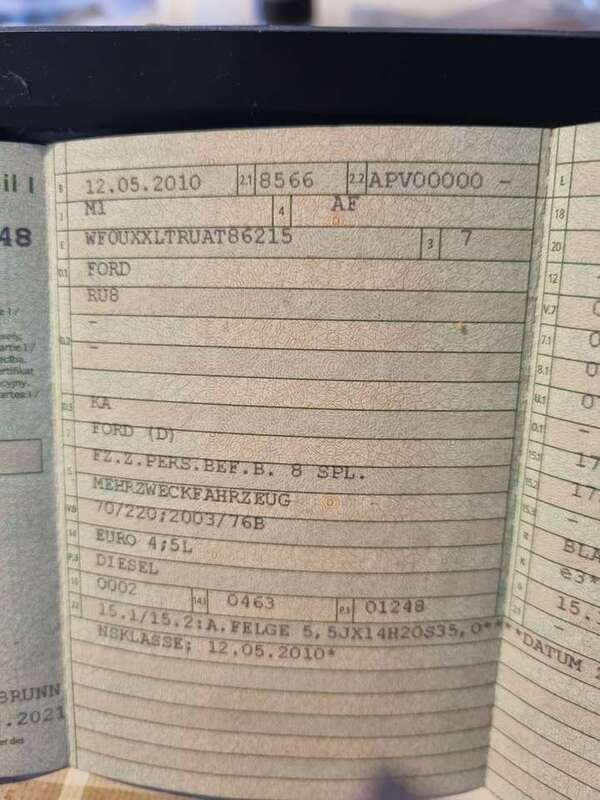 il I
48
B 12.05.2010 2.1 8566 2.2 APV00000 -
J M1 4 AF
E WFOUXXLTRUAT86215 3 7
D.1 FORD
RU8
-
D.2 -
D.3 KA
2 FORD (D)
5 FZ.Z.PERS.BEF.B. 8 SPL.
MEHRZWECKFAHRZEUG
V.9 70/220;2003/76B
14 EURO 4;5L
P.3 DIESEL
10 0002 14.1 0463 P.1 01248
22 15.1/15.2:A.FELGE 5,5JX14H2OS35,0****DATUM
NSKLASSE; 12.05.2010*
BRUNN
.2021
L
18
20
12
V.7
7.1
8.1
U.1
O.1 -
15.1 17
15.2 17
15.3 -
R BLA
K e3*
6 15.
21